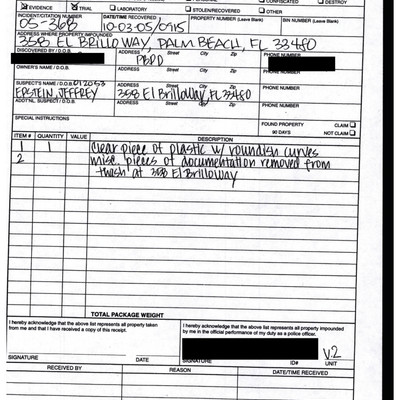 EVIDENCE TRIAL LABORATORY STOLEN/RECOVERED CONFISCATED DESTROY
OTHER
INCIDENT/CITATION NUMBER DATE/TIME RECOVERED PROPERTY NUMBER (Leave Blank) BIN NUMBER (Leave Blank)
05-368 10-03-05/0915
ADDRESS WHERE PROPERTY IMPOUNDED
358 El Brillo Way, Palm Beach, FL 33480
DISCOVERED BY / D.O.B. ADDRESS Street City Zip PHONE NUMBER
PBPD
OWNER'S NAME / D.O.B. ADDRESS Street City Zip PHONE NUMBER
SUSPECT'S NAME / D.O.B. 012053 ADDRESS Street City Zip PHONE NUMBER
EPSTEIN, JEFFREY 358 El Brillo Way, Fl 33480
ADDT'NL SUSPECT / D.O.B. ADDRESS Street City Zip PHONE NUMBER
SPECIAL INSTRUCTIONS FOUND PROPERTY CLAIM
90 DAYS NOT CLAIM
ITEM # QUANTITY VALUE DESCRIPTION
1 1 Clear piece of plastic w/ roundish curves
2 misc. pieces of documentation removed from
trash at 358 El Brillo Way
TOTAL PACKAGE WEIGHT
I hereby acknowledge that the above list represents all property taken
from me and that I have received a copy of this receipt.
I hereby acknowledge that the above list represents all property impounded
by me in the official performance of my duty as a police officer.
V.2
SIGNATURE DATE SIGNATURE ID# UNIT
RECEIVED BY REASON DATE/TIME RECEIVED